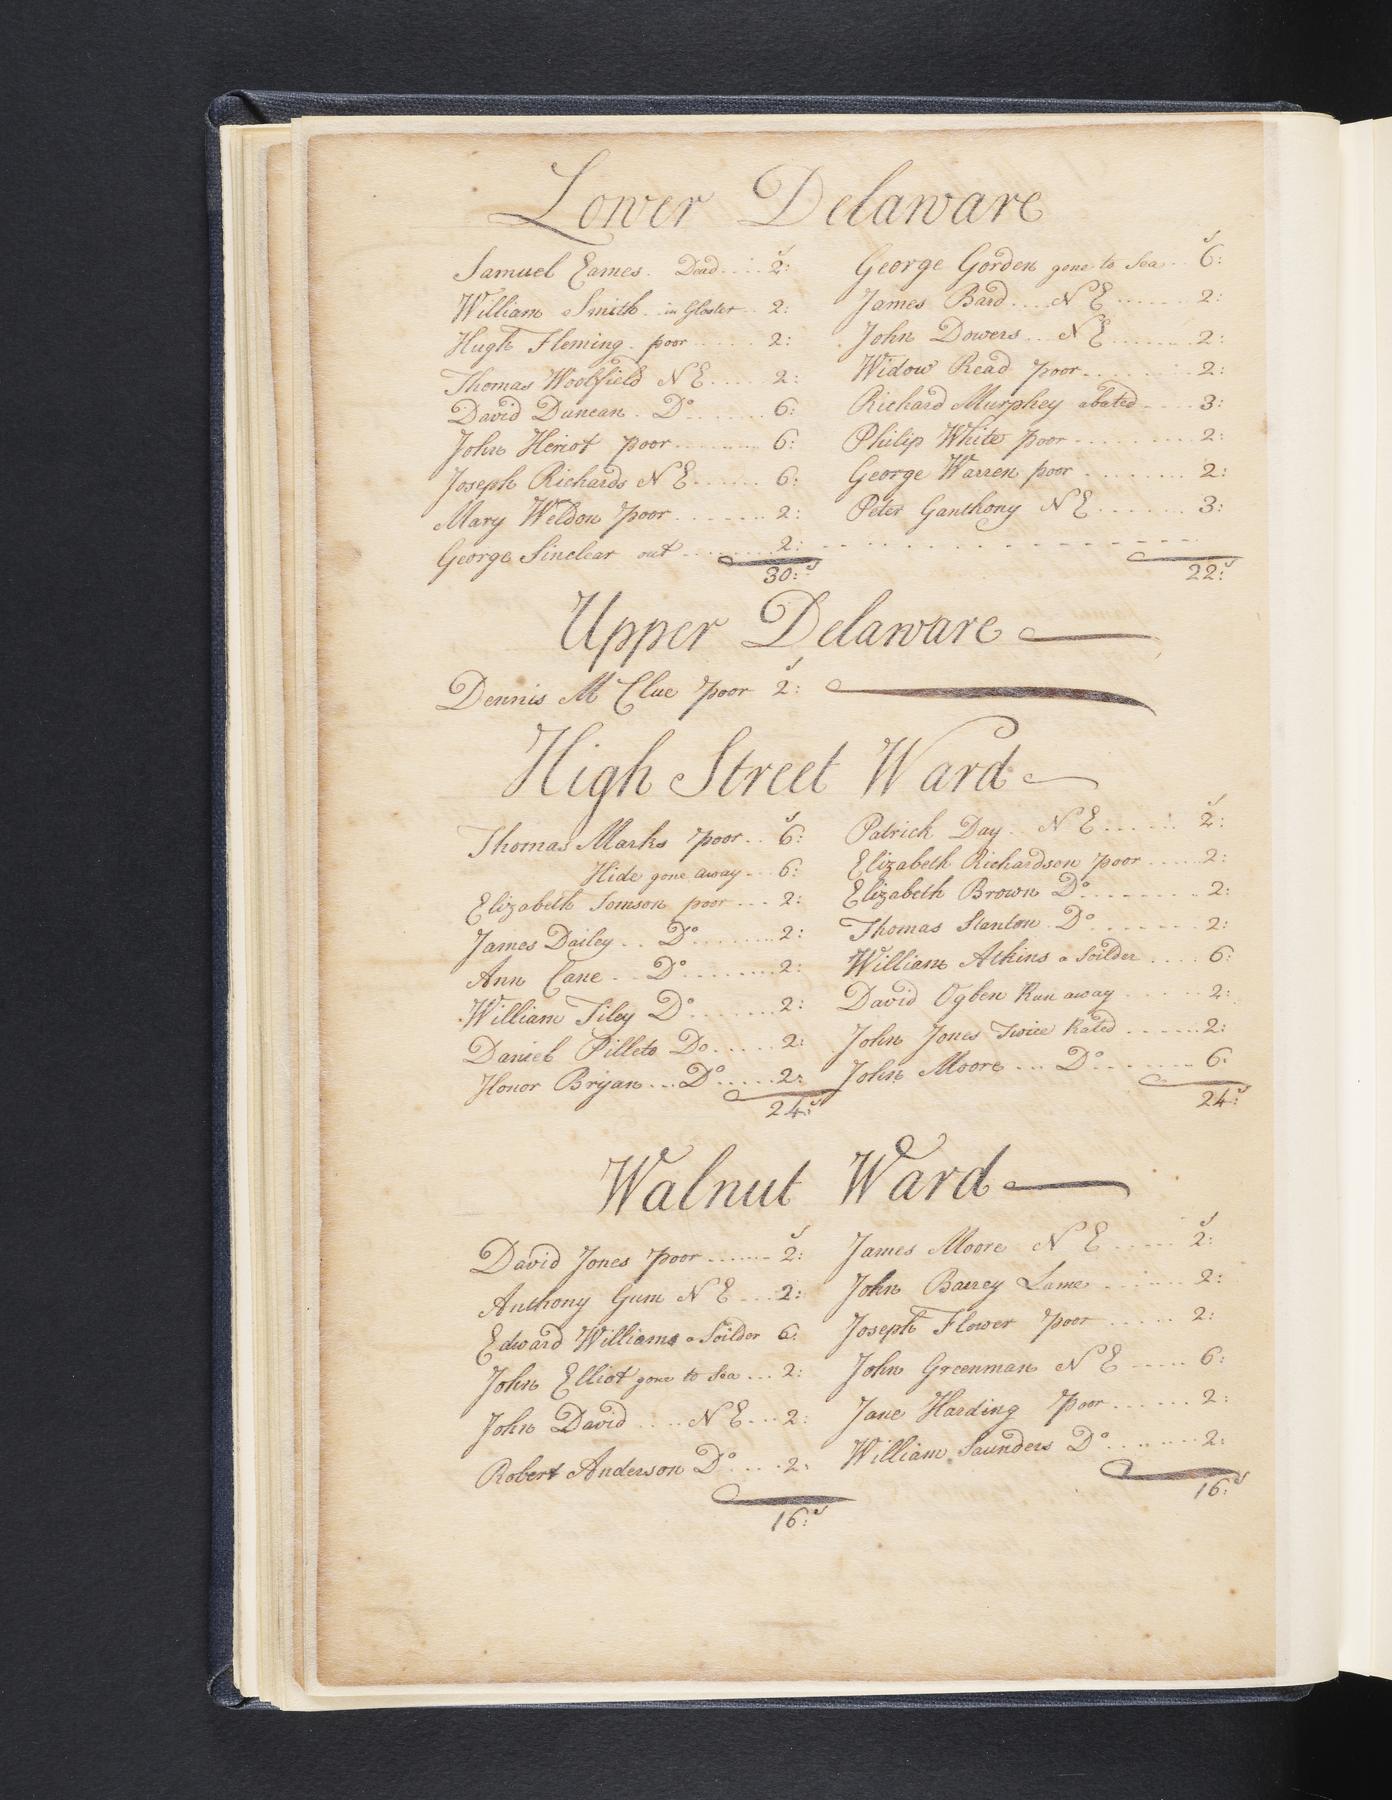 Lower Delaware
Samuel Eames. Dead.... 2:
William Smith.. in Gloster.. 2:
Hugh Fleming. poor....... 2:
Thomas Woolfield N E..... 2:
David Duncan. Do....... 6:
John Heriot poor.......... 6:
Joseph Richards N E...... 6:
Mary Weldon poor........ 2:
George Sinclear out........ 2:
30:s
George Gorden gone to Sea.. 6:
James Bard.... N E....... 2:
John Dowers... N E........ 2:
Widow Read poor.......... 2:
Richard Murphey abated.... 3:
Philip White poor......... 2:
George Warren poor........ 2:
Peter Ganthony N E....... 3:
22:s
Upper Delaware
Dennis Mc Clue poor 2:
High Street Ward
Thomas Marks poor.. 6:
Hide gone away... 6:
Elizabeth Tomson poor... 2:
James Dailey.. Do........ 2:
Ann Cane... Do........ 2:
William Tiley Do........ 2:
Daniel Pillets Do...... 2:
Honor Bryan... Do..... 2:
24:s
Patrick Day. N E...... 2:
Elizabeth Richardson poor..... 2:
Elizabeth Brown Do........ 2:
Thomas Stanton Do........ 2:
William Atkins a Soilder.... 6:
David Ogben Run away...... 2:
John Jones Twice Rated...... 2:
John Moore... Do........ 6:
24:s
Walnut Ward
David Jones poor....... 2:
Anthony Gum N E... 2:
Edward Williams a Soilder 6:
John Elliot gone to Sea... 2:
John David..... N E... 2:
Robert Anderson Do.... 2:
16:s
James Moore N E..... 2:
John Barrey Lame...... 2:
Joseph Flower poor..... 2:
John Greenman N E..... 6:
Jane Harding poor...... 2:
William Saunders Do....... 2:
16:s